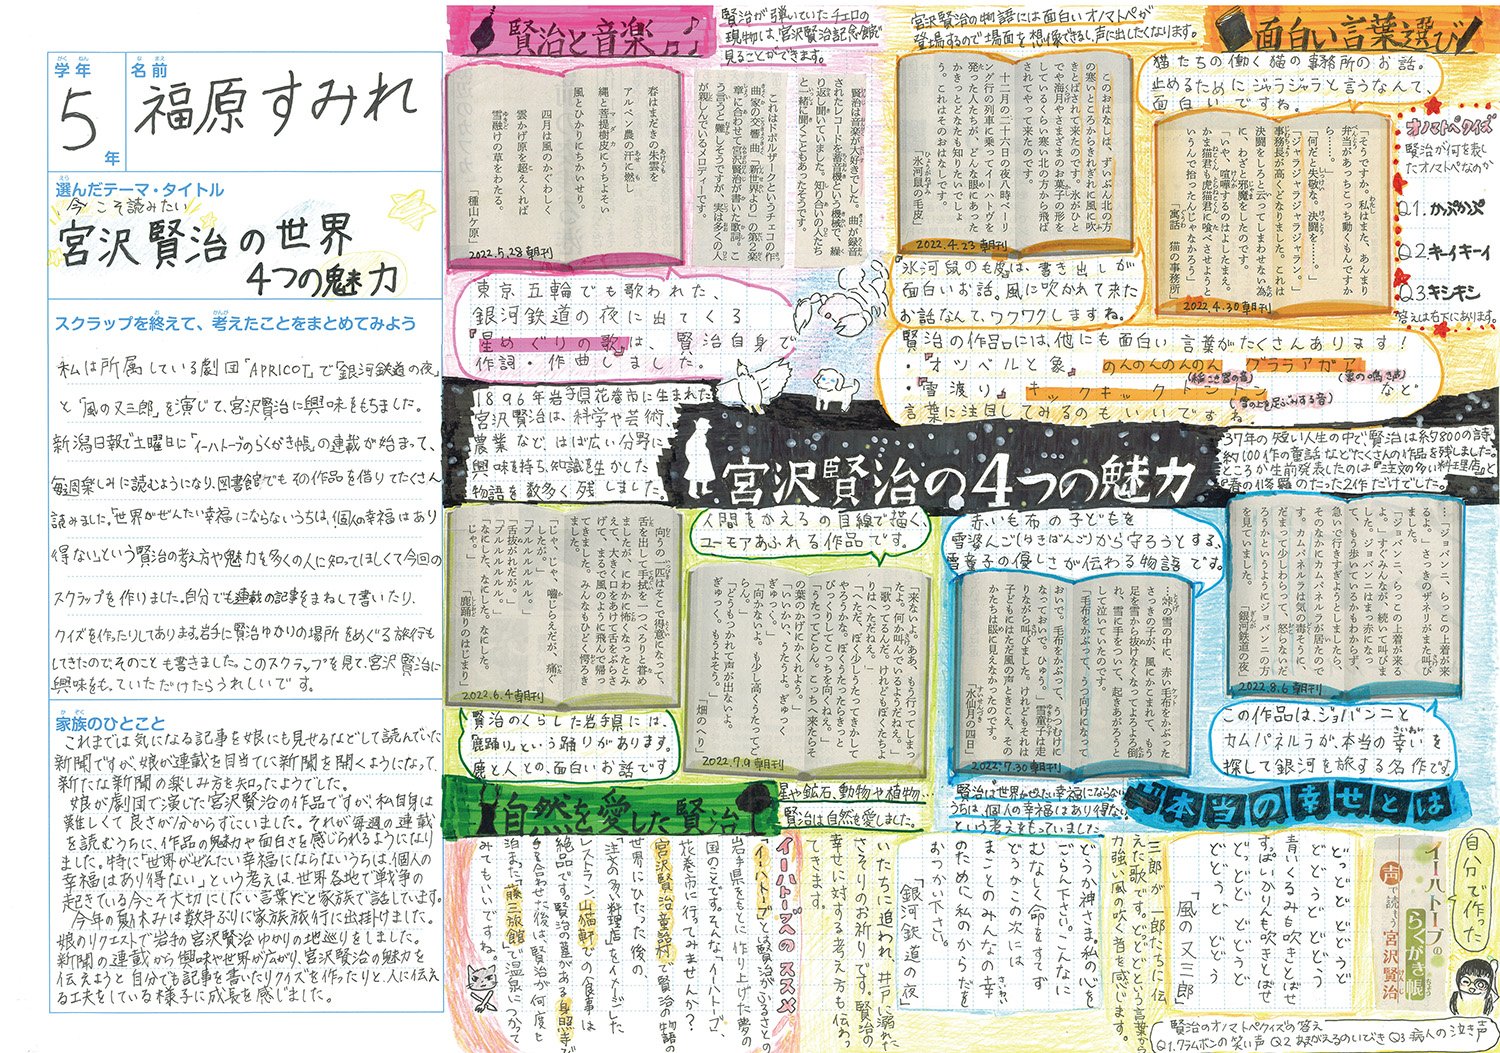 学年
5
年
名前
福原すみれ
選んだテーマ・タイトル
今こそ読みたい
宮沢賢治の世界
4つの魅力
スクラップを終えて、考えたことをまとめてみよう
私は所属している劇団「APRICOT」で「銀河鉄道の夜」
と「風の又三郎」を演じて、宮沢賢治に興味をもちました。
新潟日報で土曜日に「イーハトーブのらくがき帳」の連載が始まって、
毎週楽しみに読むようになり、図書館でもその作品を借りてたくさん
読みました。「世界がぜんたい幸福にならないうちは、個人の幸福はあり
得ない」という賢治の考え方や魅力を多くの人に知ってほしくて今回の
スクラップを作りました。自分でも連載の記事をまねして書いたり、
クイズを作ったりしてあります。岩手に賢治ゆかりの場所をめぐる旅行も
してきたので、そのことも書きました。このスクラップを見て、宮沢賢治に
興味をもっていただけたらうれしいです。
家族のひとこと
これまでは気になる記事を娘にも見せるなどして読んでいた
新聞ですが、娘が連載を目当てに新聞を開くようになって、
新たな新聞の楽しみ方を知ったようでした。
娘が劇団で演じた宮沢賢治の作品ですが、私自身は
難しくて良さが分からずにいました。それが毎週の連載
を読むうちに、作品の魅力や面白さを感じられるようになり
ました。特に「世界がぜんたい幸福にならないうちは、個人の
幸福はあり得ない」という考えは、世界各地で戦争の
起きている今こそ大切にしたい言葉だと家族で話しています。
今年の夏休みは数年ぶりに家族旅行に出掛けました。
娘のリクエストで岩手の宮沢賢治ゆかりの地巡りをしました。
新聞の連載から興味や世界が広がり、宮沢賢治の魅力を
伝えようと自分でも記事を書いたりクイズを作ったりと、人に伝え
る工夫をしている様子に成長を感じました。
賢治と音楽
賢治が弾いていたチェロの
現物は、宮沢賢治記念館で
見ることができます。
春はまだきの朱雲を
アルペン農の汗に燃し
縄と菩提樹皮にうちよそい
風とひかりにちかいせり。
四月は風のかぐわしく
雲かげ原を超えくれば
雪融けの草をわたる。
「種山ヶ原」
2022.5.28 朝刊
賢治は音楽が大好きでした。曲が録音
されたレコードを蓄音機という機械で、繰
り返し聞いていました。知り合いの人たち
と一緒に聞くこともあったそうです。
これはドボルザークというチェコの作
曲家の交響曲「新世界より」の第2楽
章に合わせて宮沢賢治が書いた歌詞。こ
う言うと難しそうですが、実は多くの人
が親しんでいるメロディーです。
東京五輪でも歌われた、
銀河鉄道の夜に出てくる
『星めぐりの歌』は、賢治自身で
作詞・作曲しました。
宮沢賢治の物語には面白いオノマトペが
登場するので場面を想像できるし、声に出したくなります。
面白い言葉選び
このおはなしは、ずいぶん北の方
の寒いところからきれぎれに風に吹
きとばされて来たのです。氷がひと
でや海月やさまざまのお菓子の形を
しているくらい寒い北の方から飛ば
されてやって来たのです。
十二月の二十六日の夜八時ベーリ
ング行の列車に乗ってイーハトヴを
発った人たちが、どんな眼にあった
かきっとどなたも知りたいでしょ
う。これはそのおはなしです。
「氷河鼠の毛皮」
2022.4.23 朝刊
『氷河鼠の毛皮』は、書き出しが
面白いお話。風に吹かれて来た
お話なんて、ワクワクしますね。
猫たちの働く猫の事務所のお話。
止めるためにジャラジャラと言うなんて、
面白いですね。
「そうですか。私はまた、あんまり
弁当があっちこっち動くもんですか
ら……。」
「何だと失敬な。決闘を……。」
「ジャラジャラジャラジャラン。」
事務長が高くどなりました。これは
決闘をしろと云ってしまわせない為
に、わざと邪魔をしたのです。
「いや、喧嘩するのはよしたまえ。
かま猫君も虎猫君に喰べさせようと
いうんで拾ったんじゃなかろう」
「寓話 猫の事務所」
2022.4.30 朝刊
オノマトペクイズ
賢治が何を表し
たオノマトペなのか
Q1.かぷかぷ
Q2.キーイキーイ
Q3.キシキシ
答えは右下にあります。
賢治の作品には、他にも面白い言葉がたくさんあります！
・『オツベルと象』のんのんのんのん グララアガア
(稲こき器の音) (象の鳴き声)
・『雪渡り』キックキックトントン など
(雪の上を足ぶみする音)
言葉に注目してみるのもいいですね。
1896年岩手県花巻市に生まれた
宮沢賢治は、科学や芸術、
農業など、はば広い分野に
興味を持ち、知識を生かした
物語を数多く残しました。
宮沢賢治の4つの魅力
37年の短い人生の中で賢治は約800の詩、
約100作の童話などたくさんの作品を残しました。
ところが生前発表したのは『注文の多い料理店』と
『春の修羅』のたった2作だけでした。
向うの一疋はそこで得意になって、
舌を出して手拭を一つべろりと嘗め
ましたが、にわかに怖くなったとみ
えて、大きく口をあけて舌をぶらさ
げて、まるで風のように飛んで帰っ
てきました。みんなもひどく愕ろき
ました。
「じゃ、じゃ、噛じらえだが、痛ぐ
したが。」
「プルルルルルル。」
「舌抜がれだが。」
「プルルルルルル。」
「なにした、なにした。なにした。
じゃ。」
「鹿踊りのはじまり」
2022.6.4 朝刊
賢治のくらした岩手県には、
「鹿踊り」という踊りがあります。
鹿と人との、面白いお話です
人間をかえるの目線で描く、
ユーモアあふれる作品です。
「来ないよ。ああ、もう行ってしまっ
たよ。何か叫んでいるようだねえ。」
「歌ってるんだ。けれどもぼくたちよ
りはへただねえ。」
「へただ。ぼく少しうたってきかして
やろうかな。ぼくうたったらきっと
びっくりしてこっちを向くねえ。」
「うたってごらん。こっちへ来たらそ
の葉のかげにかくれよう。」
「いいかい、うたうよ。ぎゅっく
ぎゅっく。」
「向かないよ。も少し高くうたってご
らん。」
「どうもつかれて声が出ないよ。
ぎゅっく。もうよそう。」
「畑のへり」
2022.7.9 朝刊
赤いも布の子どもを
雪婆んご(ゆきばんご)から守ろうとする、
雪童子の優しさが伝わる物語です。
…峠の雪の中に、赤い毛布をかぶった
さっきの子が、風にかこまれて、もう
足を雪から抜けなくなってよろよろ倒
れ、雪に手をついて、起きあがろうと
して泣いていたのです。
「毛布をかぶって、うつ向けになって
おいで。毛布をかぶって、うつむけに
なっておいで。ひゅう。」雪童子は走
りながら叫びました。けれどもそれは
子どもにはただ風の声ときこえ、その
かたちは眼に見えなかったのです。
「水仙月の四日」
2022.7.30 朝刊
…「ジョバンニ、らっこの上着が来
るよ。」さっきのザネリがまた叫び
ました。
「ジョバンニ、らっこの上着が来る
よ。」すぐみんなが、続いて叫びま
した。ジョバンニはまっ赤になっ
て、もう歩いているかもわからず、
急いで行きすぎようとしましたら、
そのなかにカムパネルラが居たので
す。カムパネルラは気の毒そうに、
だまって少しわらって、怒らないだ
ろうかというようにジョバンニの方
を見ていました。
「銀河鉄道の夜」
2022.8.6 朝刊
この作品は、ジョバンニと
カムパネルラが、本当の幸いを
探して銀河を旅する名作です。
自然を愛した賢治
星や鉱石、動物や植物…
賢治は自然を愛しました。
賢治は世界がぜんたい幸福にならない
うちは、個人の幸福はあり得ない
という考えをもっていました。
本当の幸せとは
イーハトーブへのススメ
「イーハトーブ」とは賢治がふるさとの
岩手県をもとに作り上げた夢の
国のことです。そんな、「イーハトーブ」、
花巻市に行ってみませんか？
宮沢賢治童話村で賢治の物語の
世界にひたった後、
『注文の多い料理店』をイメージした
レストラン山猫軒での食事は
絶品です。賢治の墓がある身照寺で
手を合わせた後は、賢治が何度も
泊まった「藤三旅館」で温泉につかって
みてもいいですね。
どうか神さま。私の心を
ごらん下さい。こんなに
むなしく命をすてず
どうかこの次には
まことのみんなの幸
のために私のからだを
おつかい下さい。
「銀河鉄道の夜」
いたちに追われ、井戸に溺れた
さそりのお祈りです。賢治の
幸せに対する考え方も伝わっ
てきます。
自分で作った
イーハトーブの
らくがき帳
声で読もう 宮沢賢治
どっどど どどうど
どどうど どどう
青いくるみも吹きとばせ
すっぱいかりんも吹きとばせ
どっどど どどうど
どどうど どどう
「風の又三郎」
三郎が一郎たちに伝
えた歌です。どっどどという言葉から
力強い風の吹く音を感じます。
賢治のオノマトペクイズの答え
Q1.クラムボンの笑い声 Q2 あまがえるのいびき Q3 病人の泣き声